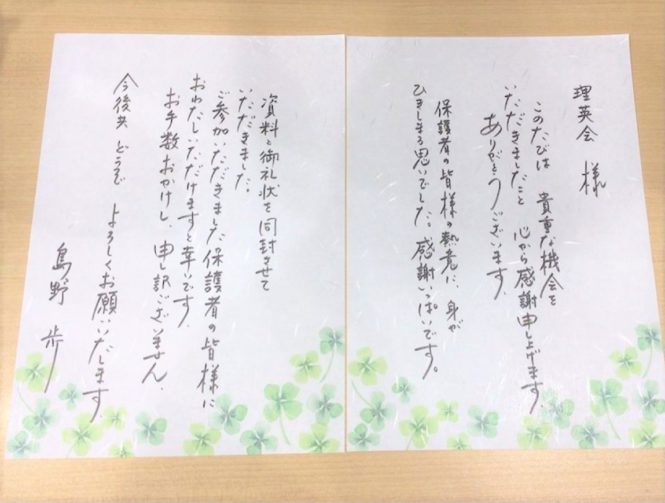 理英会 様
このたびは 貴重な機会を
いただきましたこと 心から感謝申し上げます.
ありがとうございます
保護者の皆様の熱意に、身が
ひきしまる思いでした。感謝いっぱいです。
資料と御礼状を同封させて
いただきました。
ご参加いただきました保護者の皆様に
おわたしいただけますと幸いです.
お手数おかけし、申し訳ございません.
今後共 どうぞ よろしくお願いいたします.
島野 歩